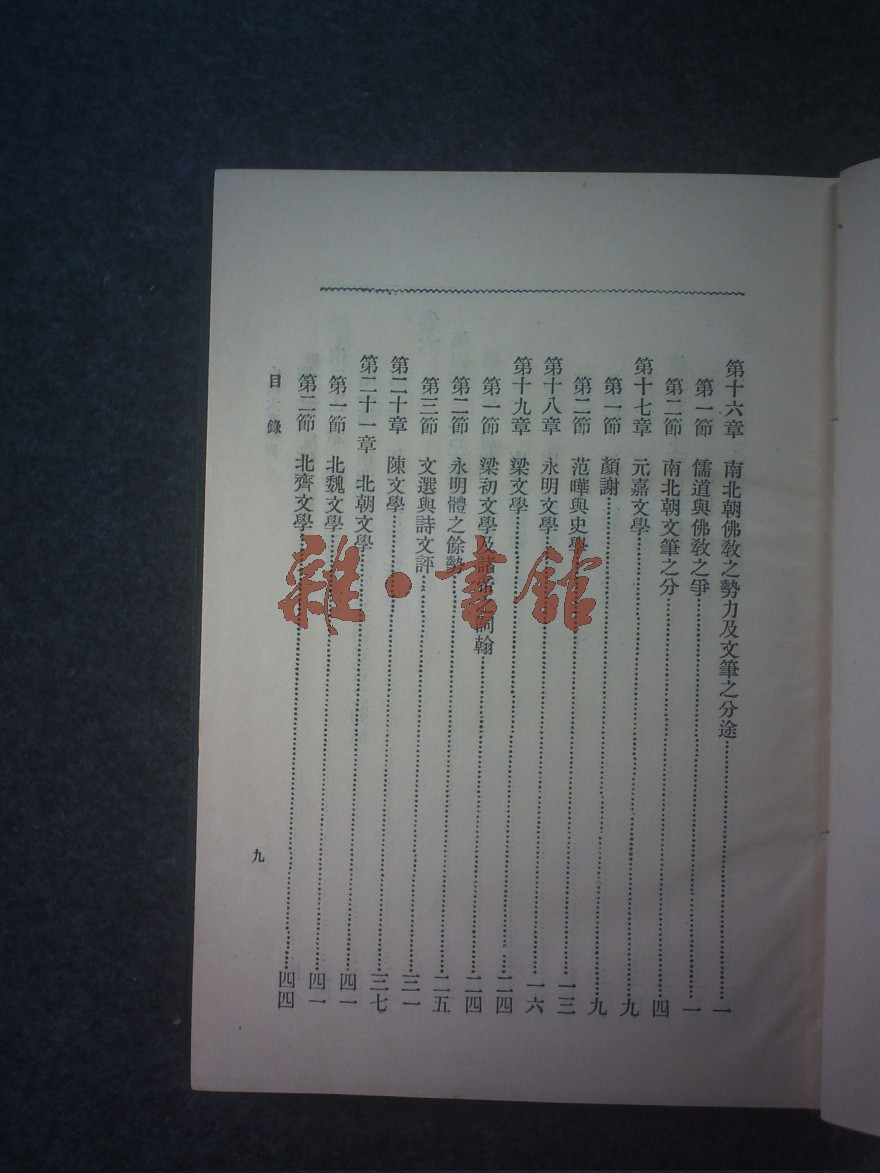 第十六章 南北朝佛教之勢力及文筆之分途……一
第一節 儒道與佛教之爭……一
第二節 南北朝文筆之分……四
第十七章 元嘉文學……九
第一節 顏謝……九
第二節 范曄與史學……一三
第十八章 永明文學……一六
第十九章 梁文學……二四
第一節 梁初文學及諸帝之詞翰……二四
第二節 永明體之餘勢……二五
第三節 文選與詩文評……三一
第二十章 陳文學……三七
第二十一章 北朝文學……四一
第一節 北魏文學……四一
第二節 北齊文學……四四
目錄
九
雜·書館